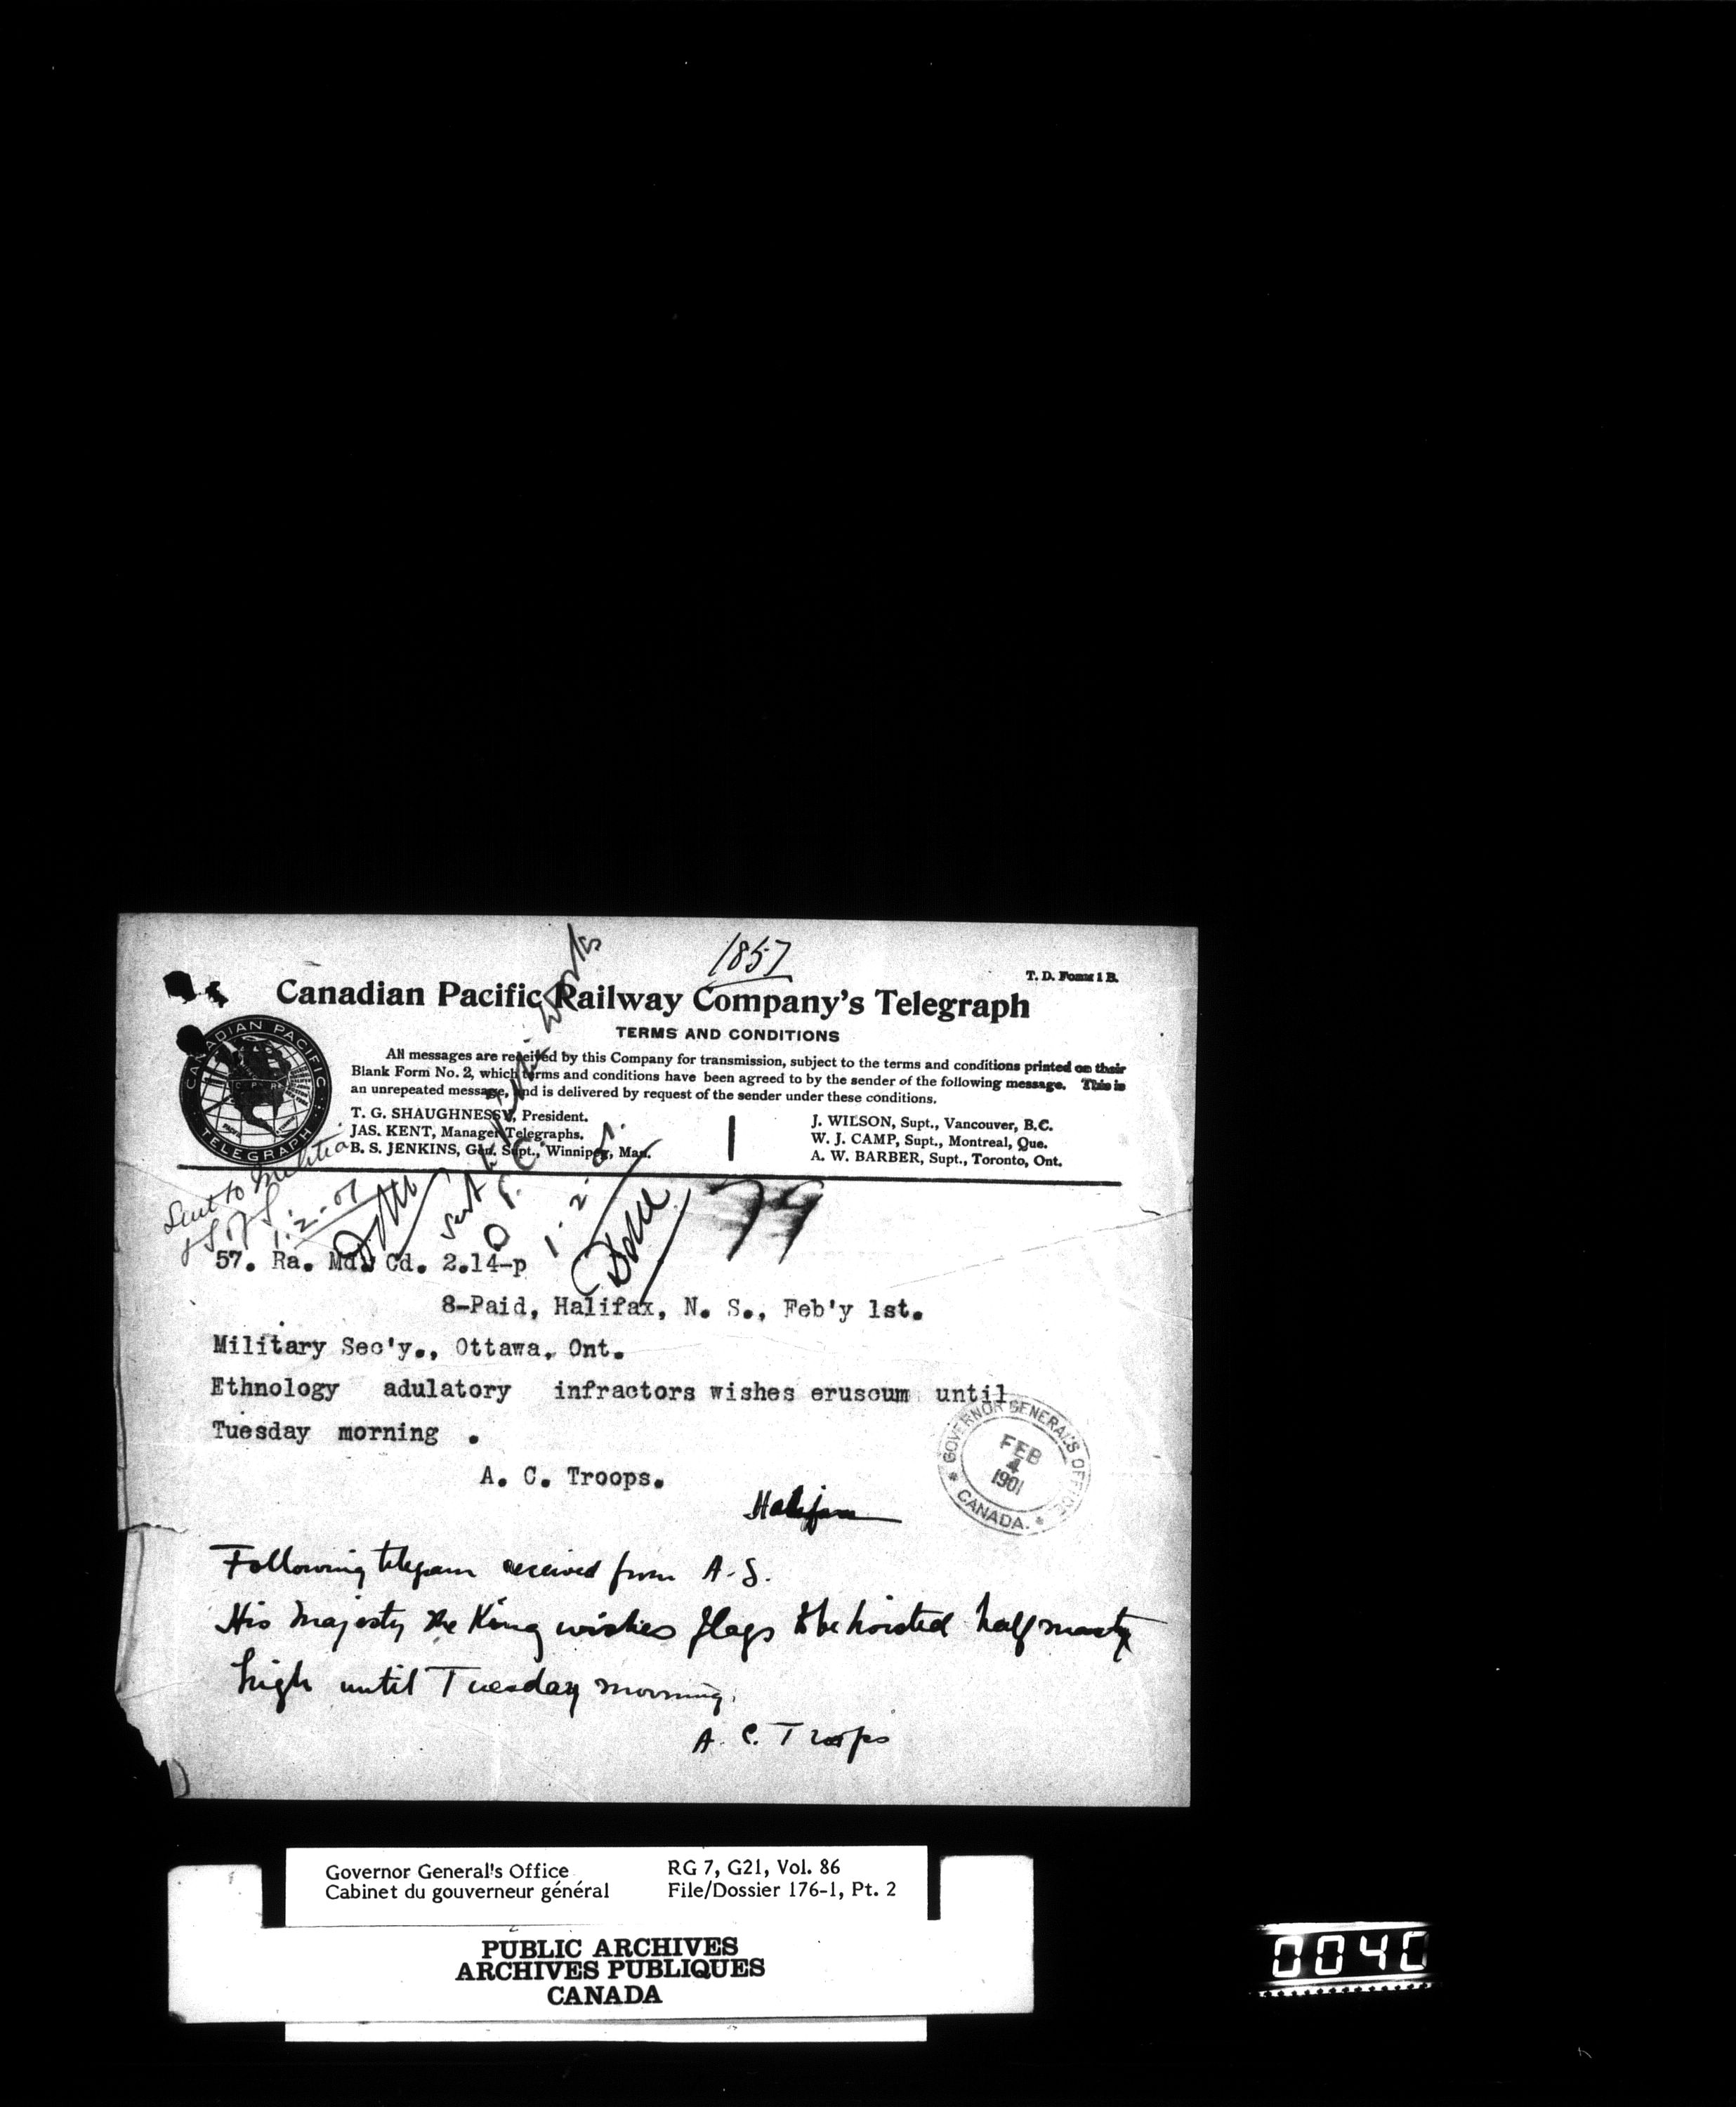 1857
T. D. Form 1 B.
Canadian Pacific Railway Company's Telegraph
TERMS AND CONDITIONS
All messages are received by this Company for transmission, subject to the terms and conditions printed on their
Blank Form No. 2, which terms and conditions have been agreed to by the sender of the following message. This is
an unrepeated message, and is delivered by request of the sender under these conditions.
CANADIAN PACIFIC
C P R
TELEGRAPH
T. G. SHAUGHNESSY, President.
JAS. KENT, Manager Telegraphs.
B. S. JENKINS, Gen. Supt., Winnipeg, Man.
J. WILSON, Supt., Vancouver, B.C.
W. J. CAMP, Supt., Montreal, Que.
A. W. BARBER, Supt., Toronto, Ont.
Sent to Militia
1.2.01
Sent to Public Works
1.2.01.
79
57. Ra. Md. Cd. 2.14-p
8-Paid, Halifax, N. S., Feb'y 1st.
Military Sec'y., Ottawa, Ont.
Ethnology adulatory infractors wishes eruscum until
Tuesday morning .
A. C. Troops.
GOVERNOR GENERAL'S OFFICE
FEB
4
1901
CANADA.
Halifax
Following telegram received from A. S.
His Majesty the King wishes flags to be hoisted half mast
high until Tuesday morning.
A. C. Troops
Governor General's Office
Cabinet du gouverneur général
RG 7, G21, Vol. 86
File/Dossier 176-1, Pt. 2
PUBLIC ARCHIVES
ARCHIVES PUBLIQUES
CANADA
0040